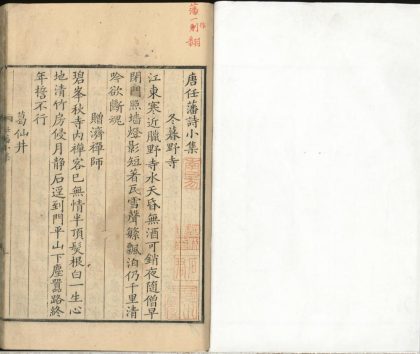 藩一作翻
唐任藩詩小集
冬暮野寺
江東寒近臘野寺水天昏無酒可銷夜隨僧早
閉門照牆燈影短著瓦雪聲繁飄泊仍千里清
吟欲斷魂
贈濟禪師
碧峯秋寺內禪客已無情半頂髮根白一生心
地清竹房侵月靜石逕到門平山下塵囂路終
年誓不行
葛仙井